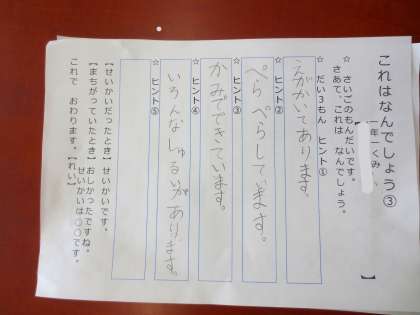 これはなんでしょう③
一年一くみ【　】
☆ さいごのもんだいです。
さあて、これは なんでしょう。
☆ だい3もん ヒント①
えがかいてあります。
☆ ヒント②
ぺらぺらしています。
☆ ヒント③
かみでできています。
☆ ヒント④
いろんなしゅるいがあります。
☆ ヒント⑤
【せいかいだったとき】せいかいです。
【まちがっていたとき】おしかったですね。
せいかいは〇〇です。
これで おわります。【れい】